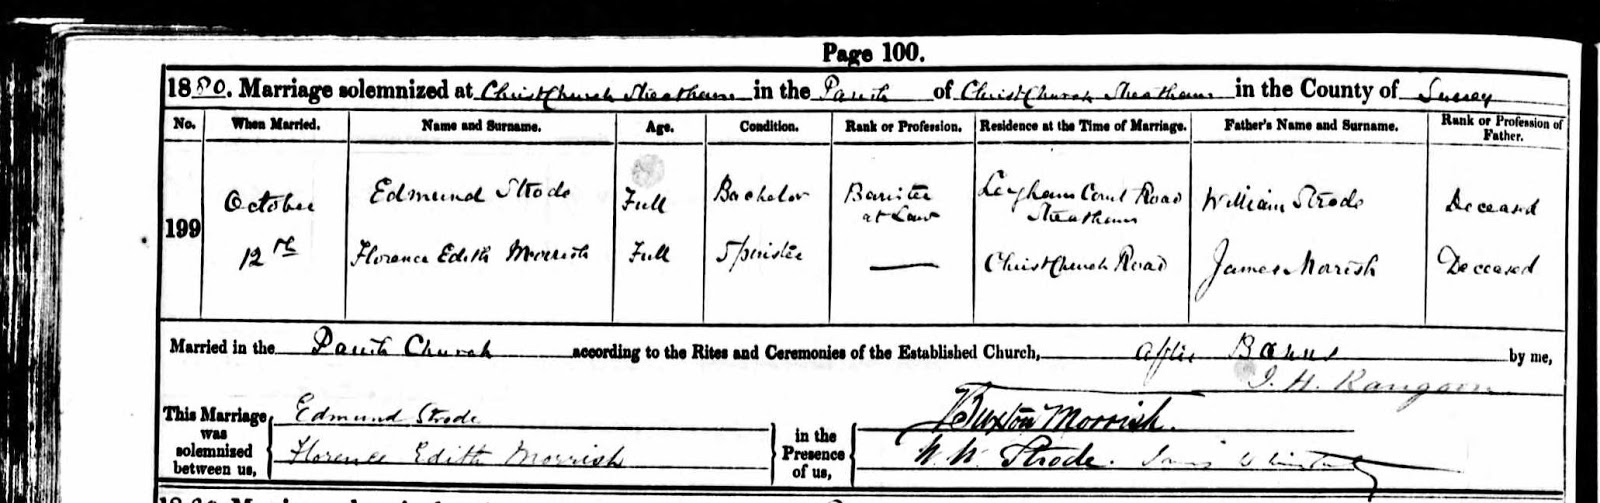 Page 100.
1880. Marriage solemnized at Christchurch Streatham in the Parish of Christchurch Streatham in the County of Surrey
No. When Married. Name and Surname. Age. Condition. Rank or Profession. Residence at the Time of Marriage. Father's Name and Surname. Rank or Profession of Father.
199 October 12th
Edmund Strode Full Bachelor Barister at Law Leigham Court Road Streatham William Strode Deceased
Florence Edith Morrish Full Spinster — Christchurch Road James Morrish Deceased
Married in the Parish Church according to the Rites and Ceremonies of the Established Church, after Banns by me,
J. H.
This Marriage was solemnized between us, Edmund Strode in the Presence of us, Buxton Morrish.
Florence Edith Morrish W. W. Strode.